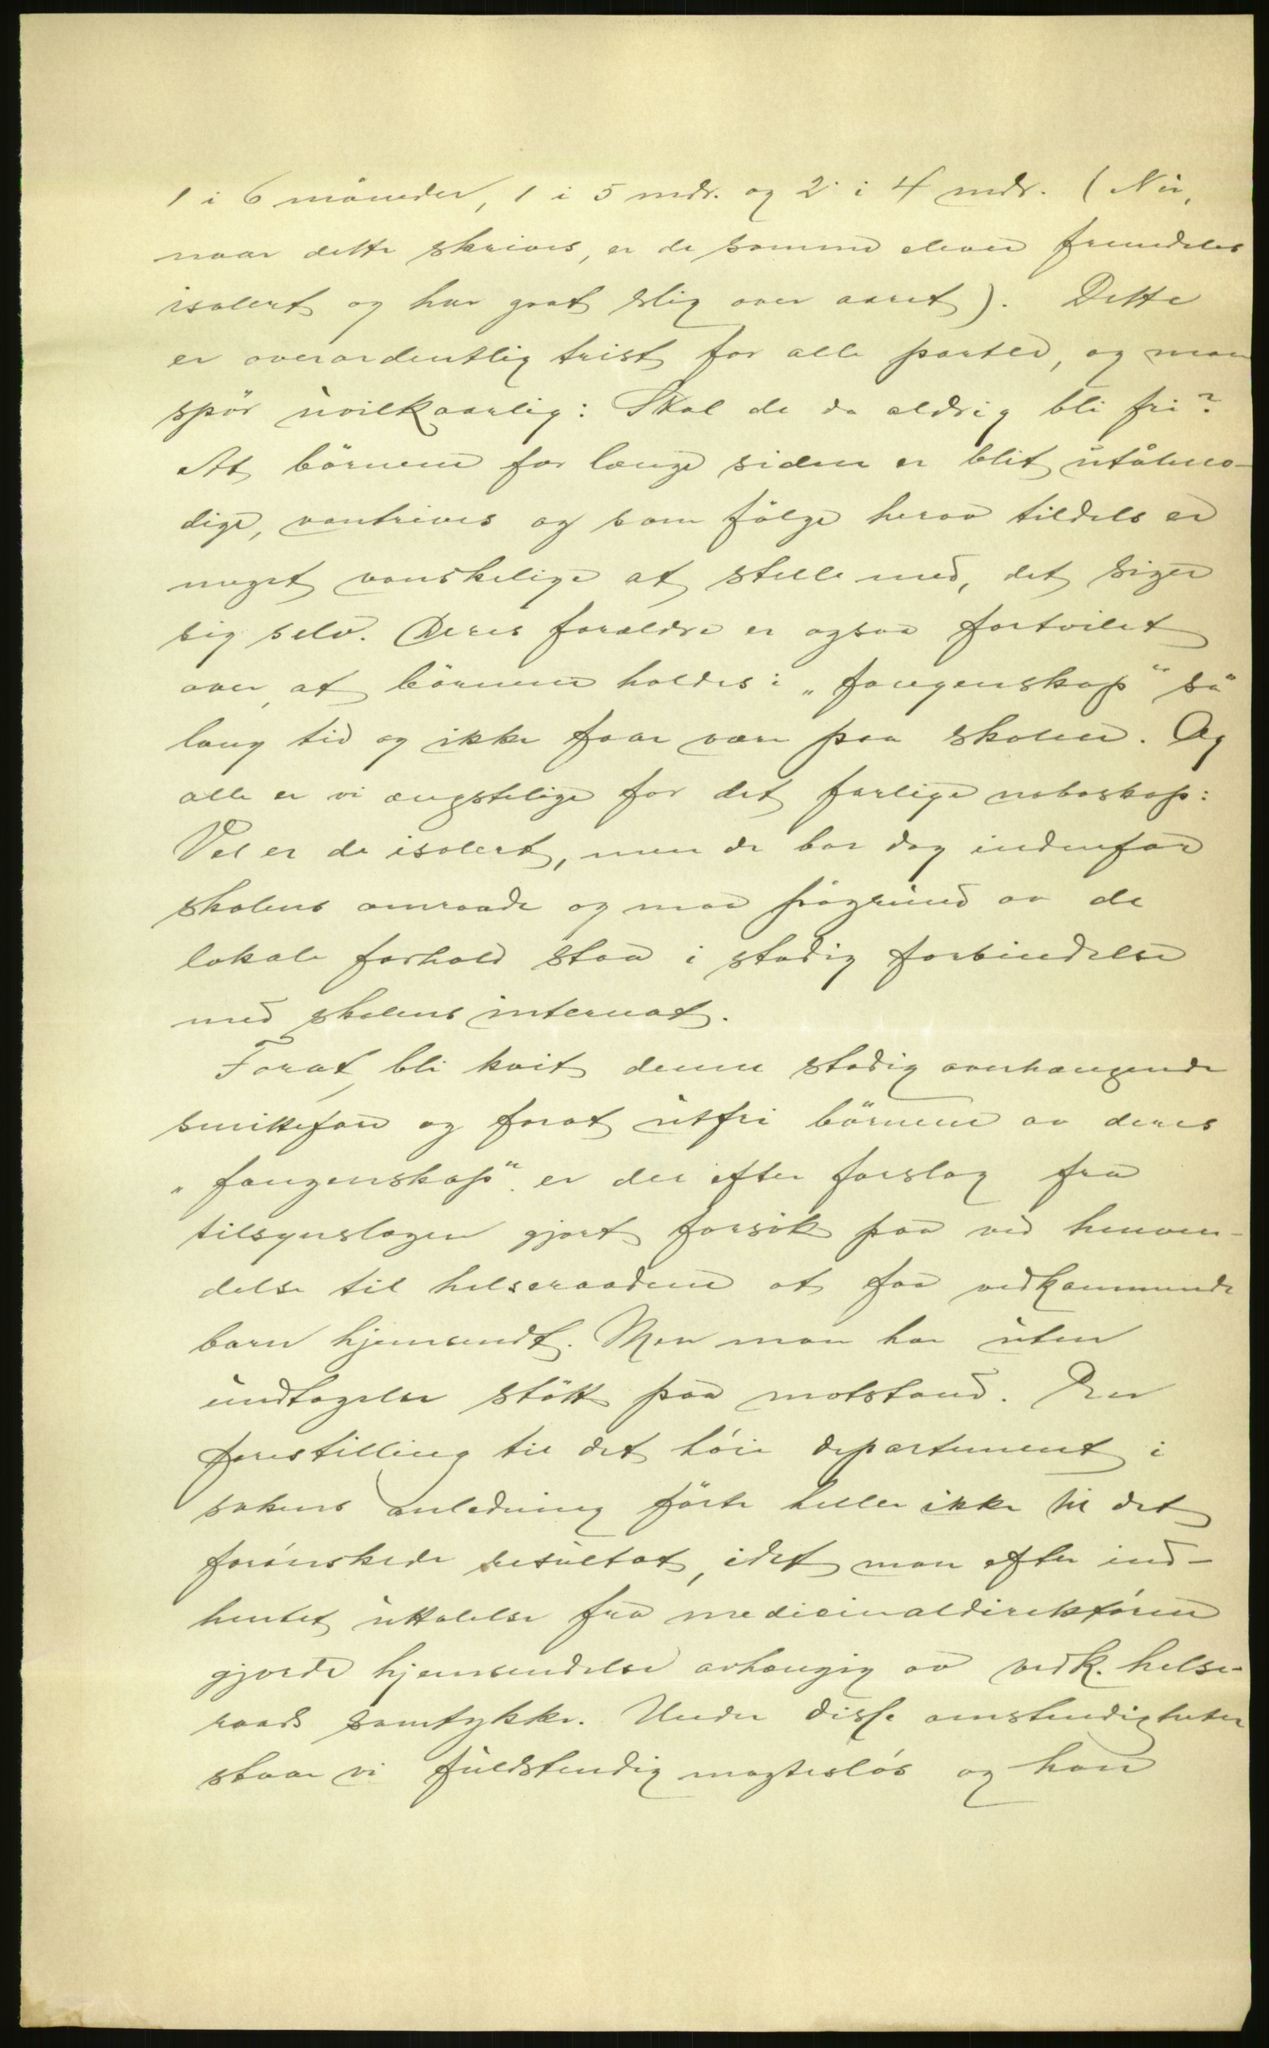 1 i 6 måneder, 1 i 5 mdr. og 2 i 4 mdr. (Nu,
naar dette skrives, er de samme elever fremdeles
isolert og har gaat slig over aaret). Dette
er overordentlig trist for alle parter, og man
spör uvilkaarlig: Skal de da aldrig bli fri?
At börnene for længe siden er blit utålmo-
dige, vantrives og som fölge herav tildels er
meget vanskelige at stelle med, det siger
sig selv. Deres forældre er ogsaa fortvilet
over, at börnene holdes i „fangenskap“ så
lang tid og ikke faar være paa skolen. Og
alle er vi ængstelige for det farlige naboskap:
Vel er de isolert, men de bor dog indenfor
skolens omraade og maa pågrund av de
lokale forhold staa i stadig forbindelse
med skolens internat.
Forat bli kvit denne stadig overhængende
smittefare og forat utfri börnene av deres
„fangenskap“ er der efter forslag fra
tilsynslægen gjort forsök paa ved henven-
delse til helseraadene at faa vedkommende
barn hjemsendt. Men man har uten
undtagelse stött paa motstand. En
forestilling til det höie departement i
sakens anledning förte heller ikke til det
forönskede resultat, idet man efter ind-
hentet uttalelse fra medicinaldirektören
gjorde hjemsendelse avhængig av vedk. helse-
raads samtykke. Under disse omstendigheter
staar vi fuldstendig magteslös og har